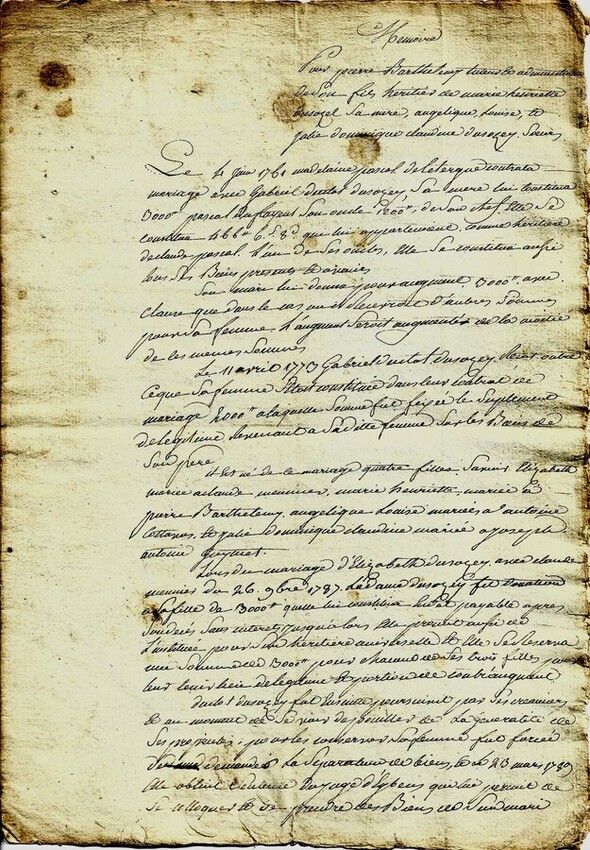 Memoire
Pour pierre Barthelemy tuteur et administrateur
de son fils heritier de marie henriette
dusozey Sa mere, angelique, Louise, et
julie dominique claudine dusozey, Sœurs
Le 4 juin 1761 madelaine pascal contrata
mariage avec Gabriel dusozey, Sa mere lui constitua
3000# pascal Son oncle 1200#, de Son chef, Elle Se
constitua 466# 6 s 8 d que lui appartenoient, comme heritiere
de claude pascal l'un de Ses oncles, Elle Se constitua aussi
tous Ses Biens presents et avenirs
Son mari lui donna pour augment 3000#, avec
clause que dans le cas ou il d'autres Sommes
pour Sa femme, l'augment Seroit augmenté de la moitié
de les memes Sommes
Le 11 avril 1773 Gabriel dusozey, outre
ce que Sa femme S'étoit constituée dans leur contrat de
mariage 2000# a laquelle Somme fut fixée le Suplement
de legitime Revenant a Saditte femme Sur les Biens de
Son père
il est né de le mariage quatre filles, Savoir Elizabeth
mariée a claude meunier, marie henriette mariée à
pierre Barthelemy, angelique Louise mariée a antoine
et julie dominique claudine mariée a joseph
antoine
Lors du mariage d'Elizabeth dusozey avec claude
meunier du 26 9bre 1787 La dame dusozey fit donation
a Sa fille de 13000# quelle lui constitua et payable après
Son deces Sans interets jusqu'alors, Elle promit aussi de
l'instituer pour Son heritiere universelle et Elle Se Reserva
une Somme de 13000# pour chacune de Ses trois filles pour
leur tenir lieu de legitime et portion de
dusozey fut Ensuite poursuivi par Ses creanciers
et au moment de Se voir depouiller de La generalité de
Ses proprietés, pour les conserver Sa femme fut forcée
demander La Separation de biens, et Le 23 mars 1789
Elle obtint Sentence du juge d'Eybens qui lui permit de
Se colloquer et de prendre des Biens de Son mari